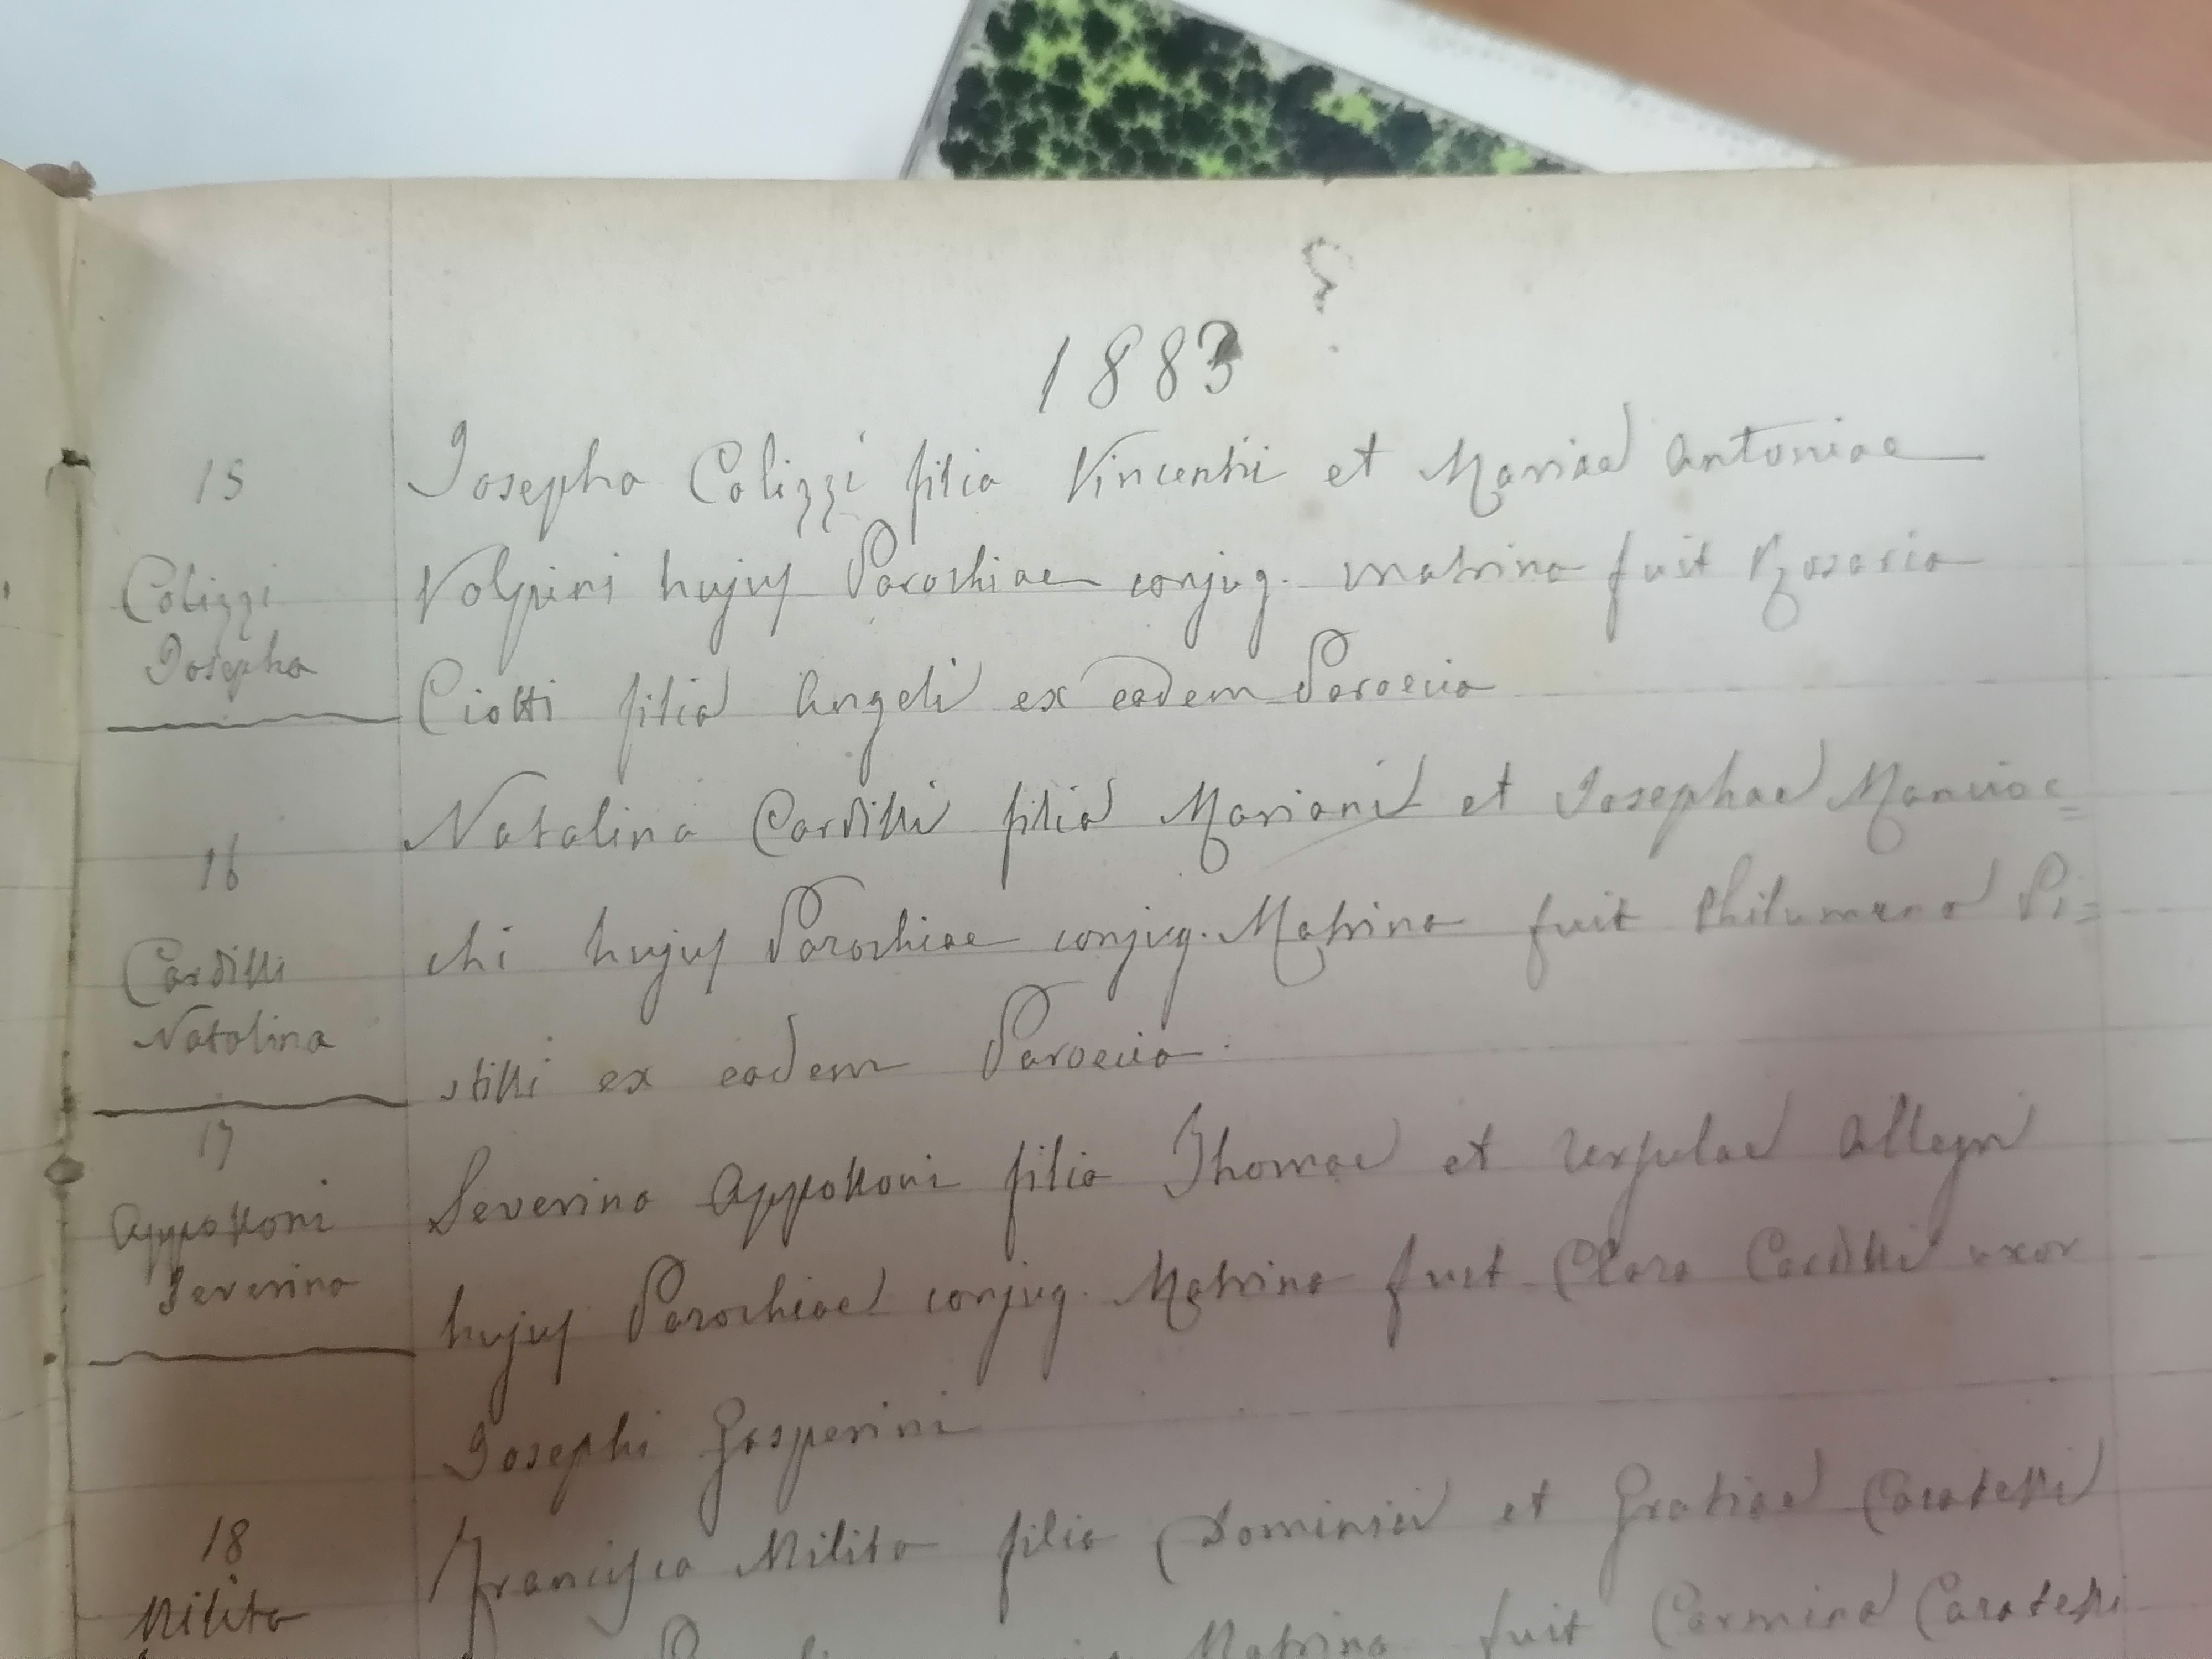 1883
15
Josepha Colizzi filia Vincentii et Mariae Antoniae
Colizzi
Josepha
Volpini hujus Parochiae conjug. matrina fuit Rosaria
Ciotti filia Angeli ex eadem Paroecia
16
Cardilli
Natalina
Natalina Cardilli filia Mariani et Josephae Mancioc=
chi hujus Parochiae conjug. Matrina fuit Philumena Pi=
stilli ex eadem Paroecia.
17
Appolloni
Severina
Severina Appolloni filia Thomae et Ursulae Allegri
hujus Parochiae conjug. Matrina fuit Clara Cardilli uxor
Josephi Gasperini
18
Milita
Francisca Milita filia Dominici et Gratiae Caratelli
Matrina fuit Carmina Caratelli